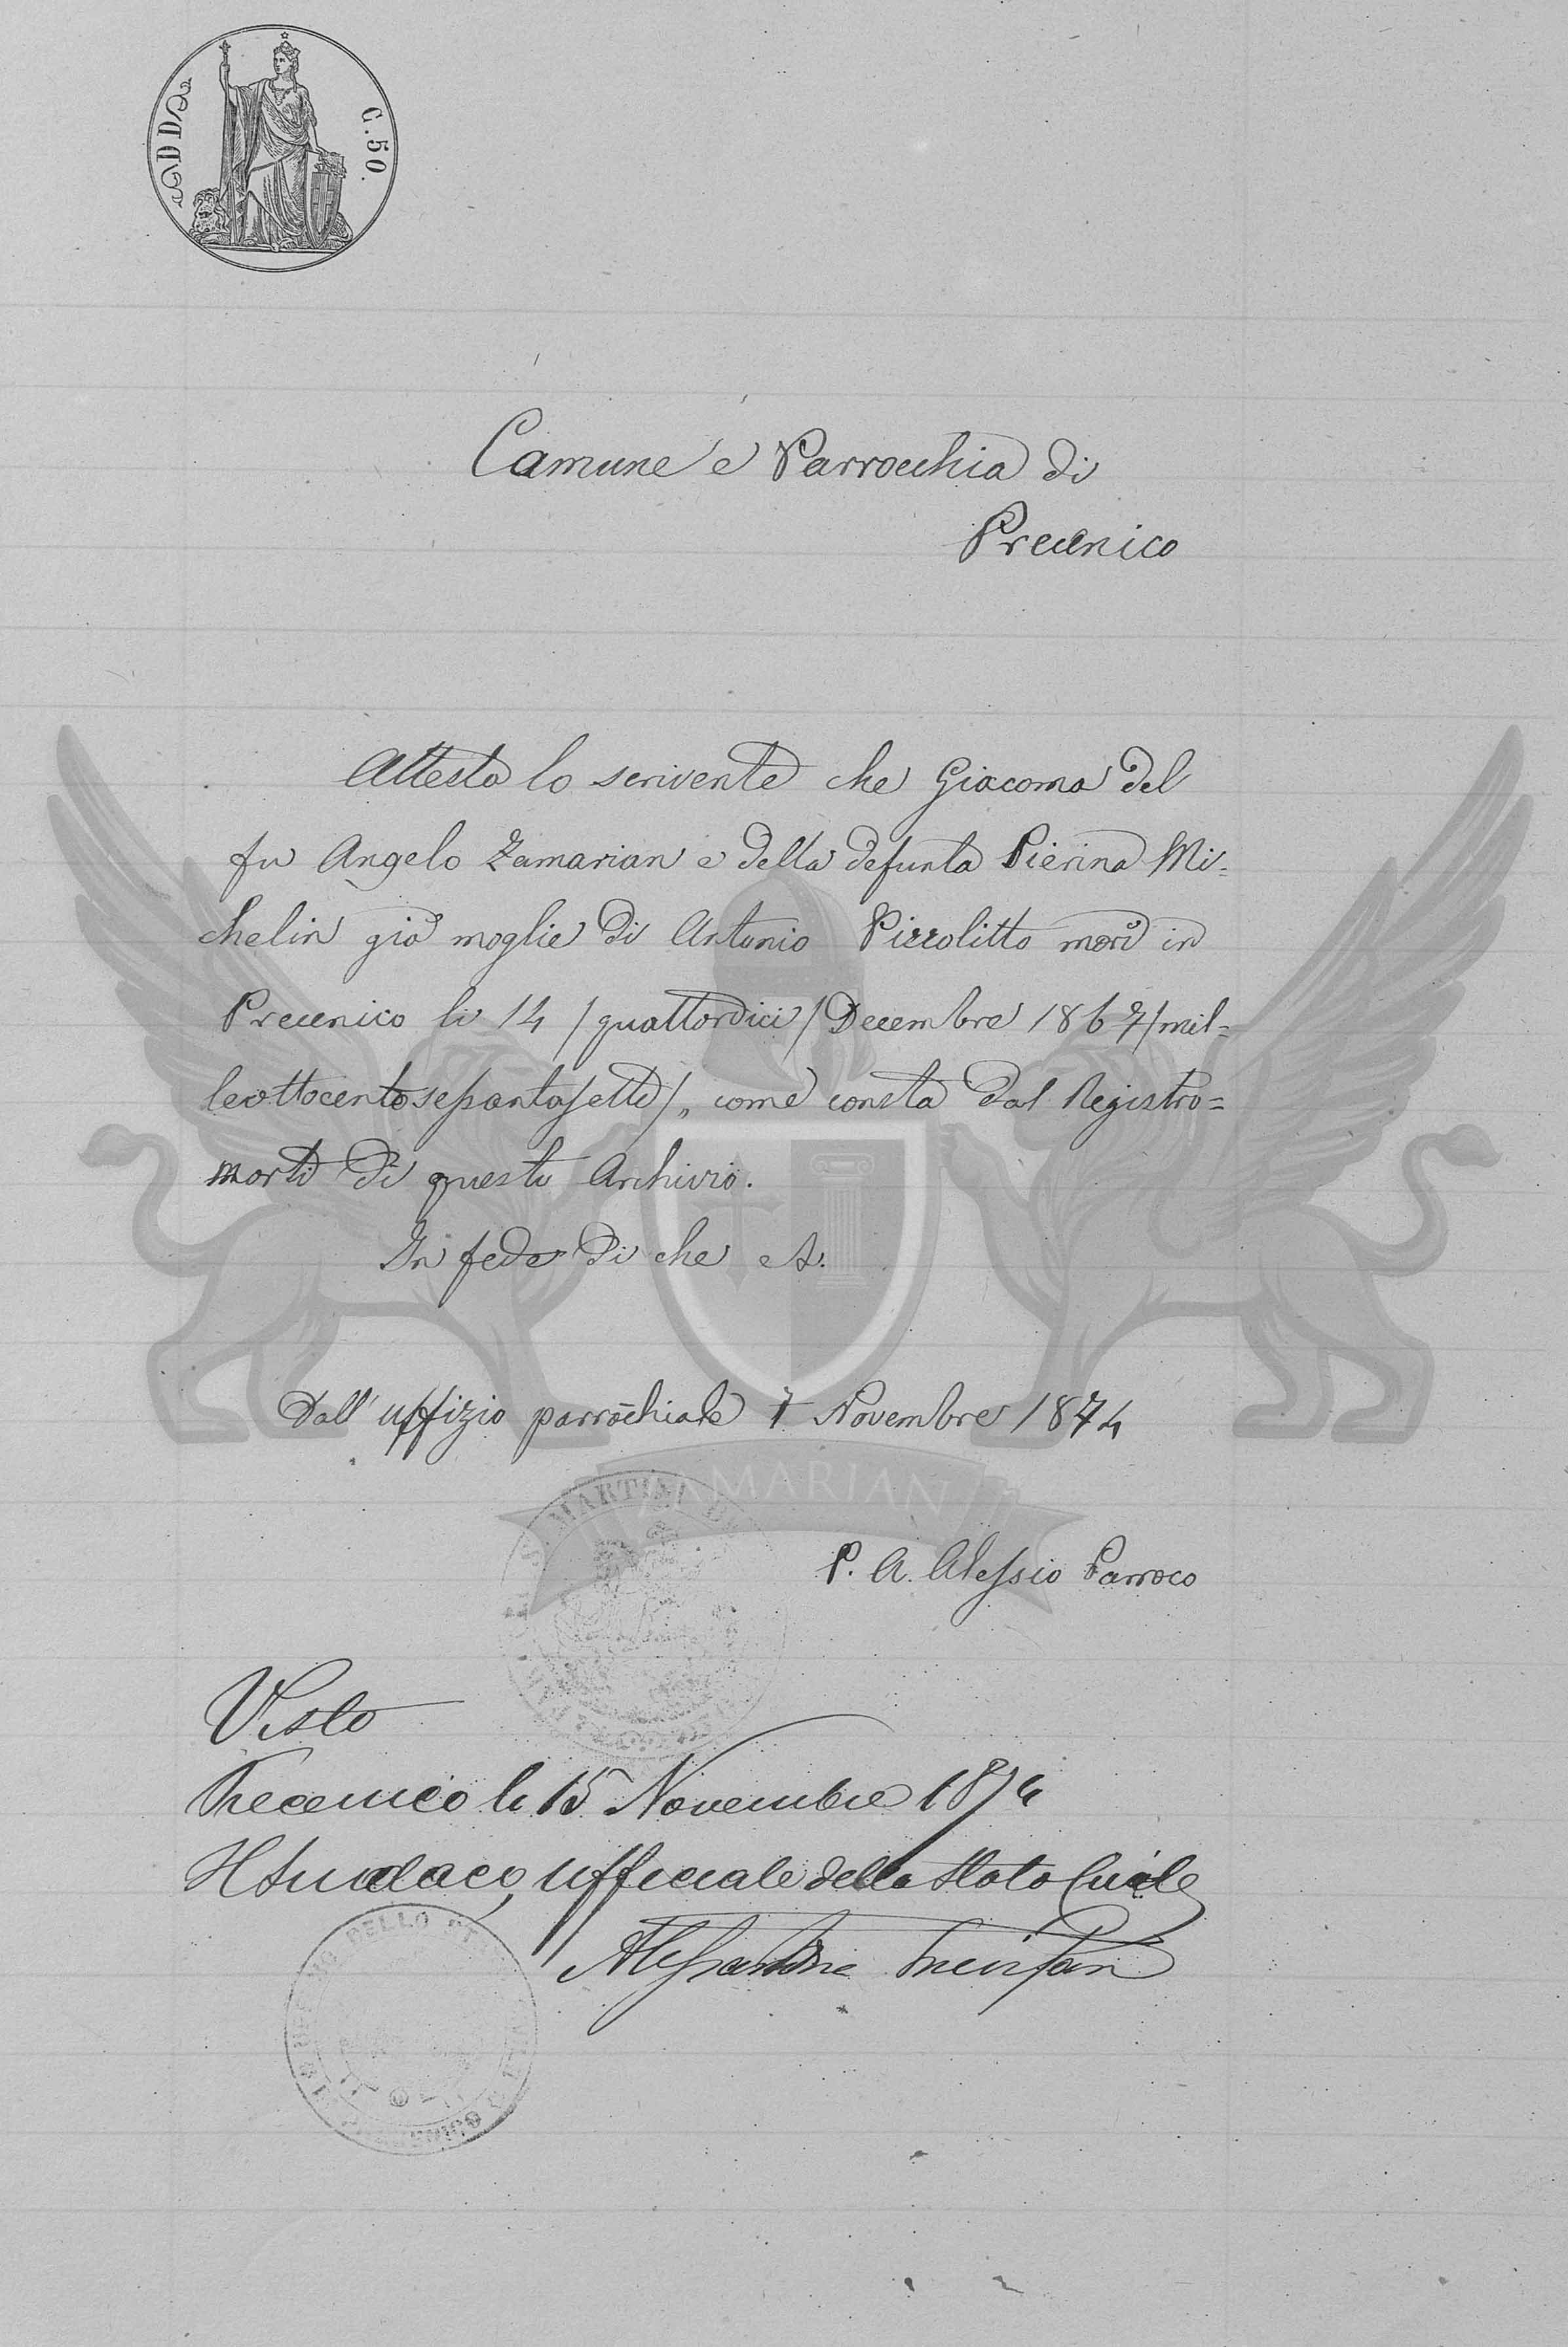 C. 50.
Comune e Parrocchia di
Precenico
Attesta lo scrivente che Giacoma del
fu Angelo Zamarian e della defunta Pierina Mi-
chelin già moglie di Antonio Pizzolitto morì in
Precenico li 14 /quattordici/ Decembre 1867 /mil-
leottocentosessantasette/, come consta dal Registro=
morti di questo Archivio.
In fede di che
Dall' uffizio parrochiale 7 Novembre 1874
ZAMARIAN
P. A. Alessio Parroco
Visto
Precenico li 15 Novembre 1874
Il Sindaco, Ufficiale dello Stato Civile
Alessandro